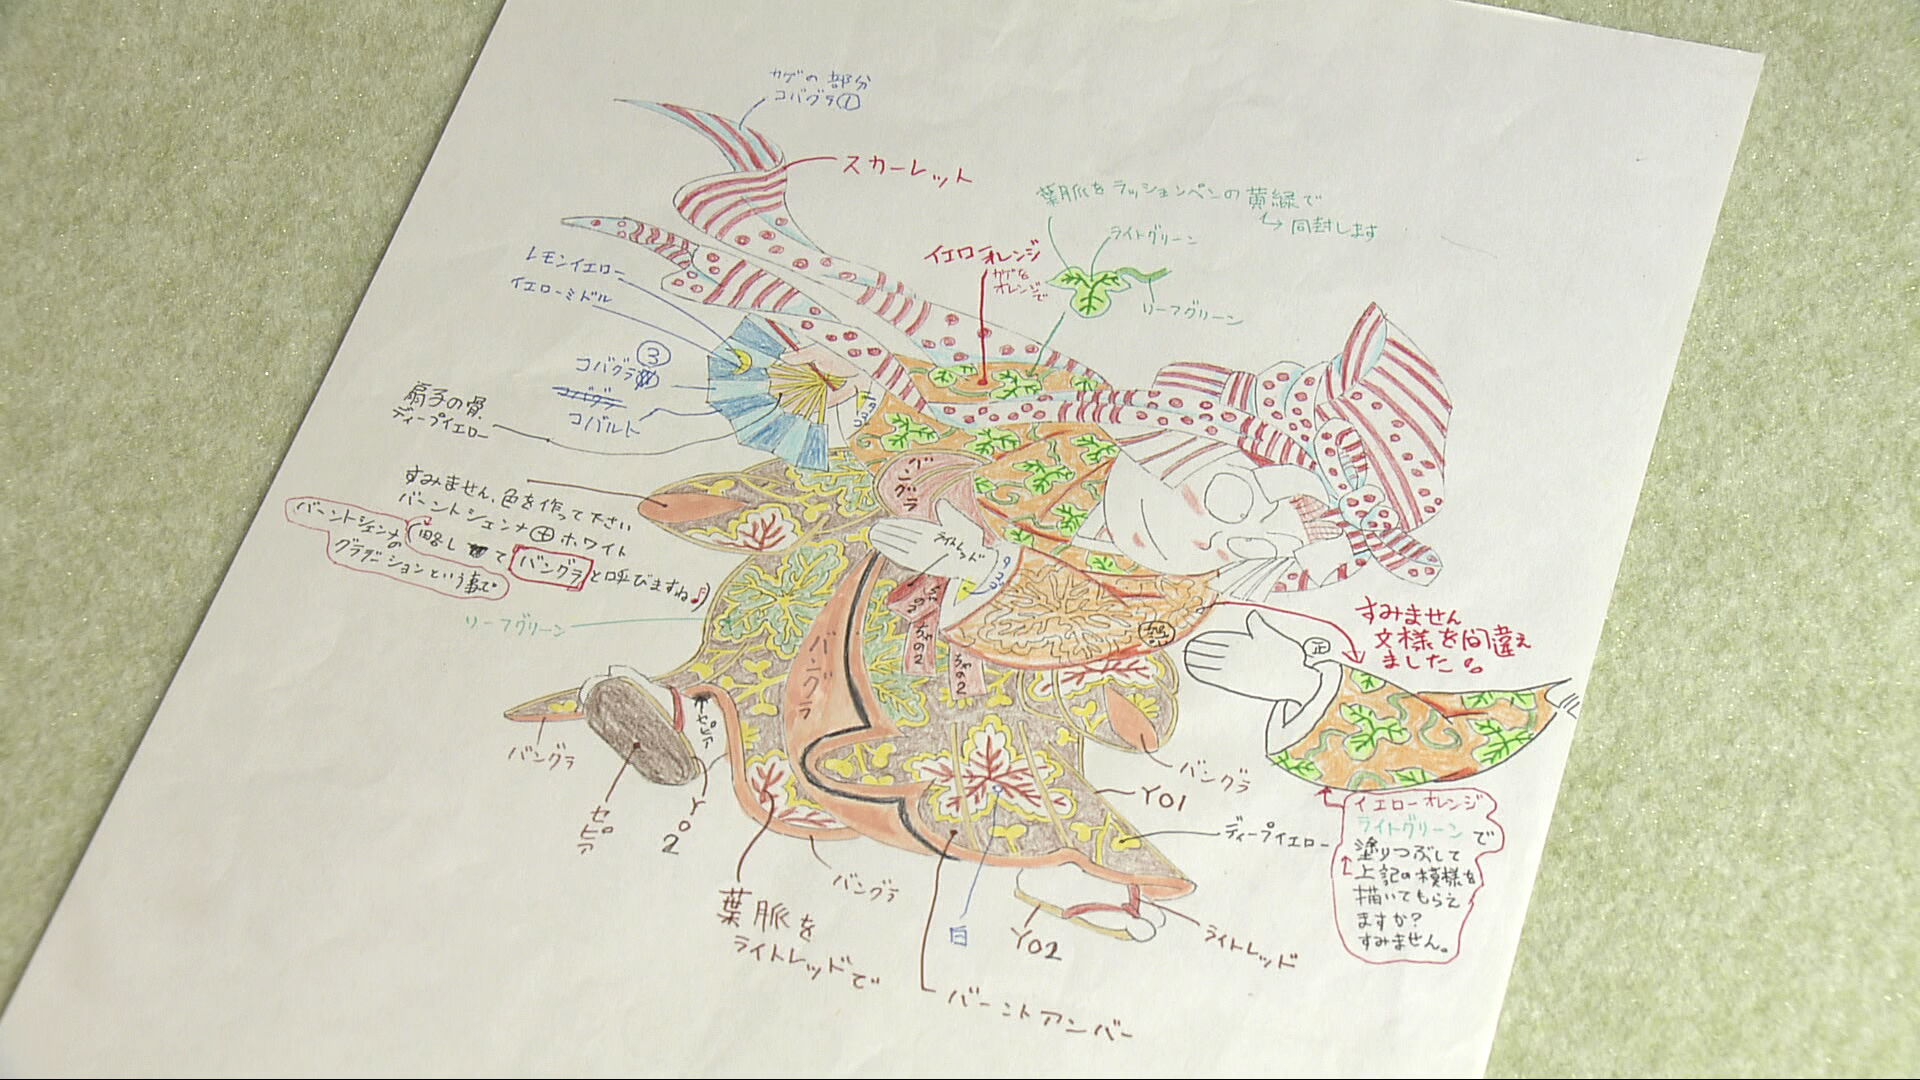 カゲの部分
コバグラ①
スカーレット
葉脈をラッションペンの黄緑で
↪同封します
ライトグリーン
イエローオレンジ
カゲを
オレンジで
リーフグリーン
レモンイエロー
イエローミドル
コバグラ③
コバルト
扇子の骨
ディープイエロー
すみません、色を作って下さい
バーントシェンナ⊕ホワイト
バーントシェンナの
グラデーションという事で
(略して バングラ と呼びますね♪)
リーフグリーン
バングラ
ライトレッド
ちゃの2
ちゃの2
ちゃの2
バングラ
バングラ
セピア
セピア
Y02
葉脈を
ライトレッドで
バングラ
白
Y02
バーントアンバー
ライトレッド
ディープイエロー
Y01
バングラ
正
すみません
文様を間違え
ました。
イエローオレンジ
ライトグリーンで
塗りつぶして
上記の模様を
描いてもらえ
ますか?
すみません。